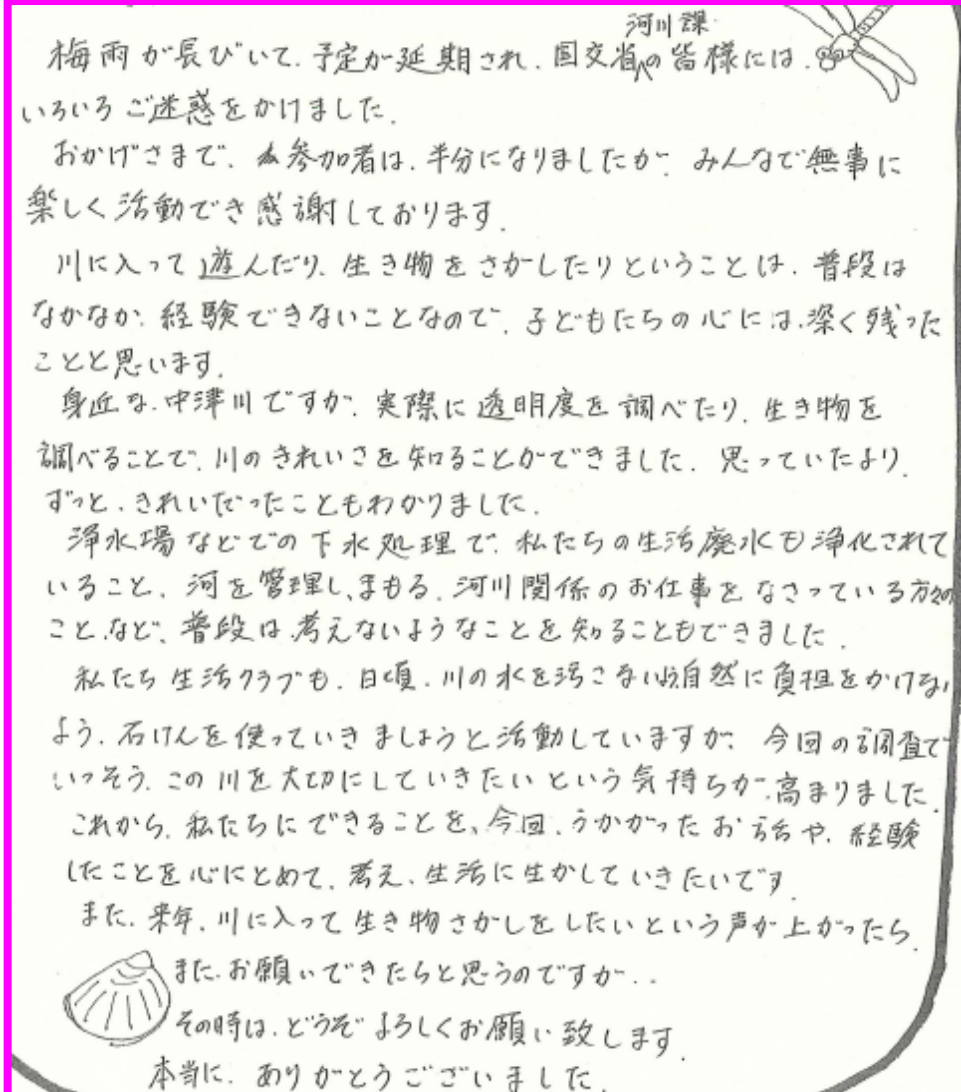 梅雨が長びいて、予定が延期され、国交省河川課の皆様には、
いろいろご迷惑をかけました。
おかげさまで、参加者は、半分になりましたが、みんなで無事に
楽しく活動でき感謝しております。
川に入って遊んだり、生き物をさがしたりということは、普段は
なかなか、経験できないことなので、子どもたちの心には、深く残った
ことと思います。
身近な、中津川ですが、実際に透明度を調べたり、生き物を
調べることで、川のきれいさを知ることができました。思っていたより、
ずっと、きれいだったこともわかりました。
浄水場などでの下水処理で、私たちの生活廃水も浄化されて
いること、河を管理し、まもる、河川関係のお仕事をなさっている方々の
こと、など、普段は、考えないようなことを知ることもできました。
私たち生活クラブも、日頃、川の水を汚さない様自然に負担をかけない
よう、石けんを使っていきましょうと活動していますが、今回の調査で
いっそう、この川を大切にしていきたいという気持ちが、高まりました。
これから、私たちにできることを、今回、うかがったお話や、経験
したことを心にとめて、考え、生活に生かしていきたいです。
また、来年、川に入って生き物さがしをしたいという声が上がったら、
また、お願いできたらと思うのですが..
その時は、どうぞよろしくお願い致します。
本当に、ありがとうございました。